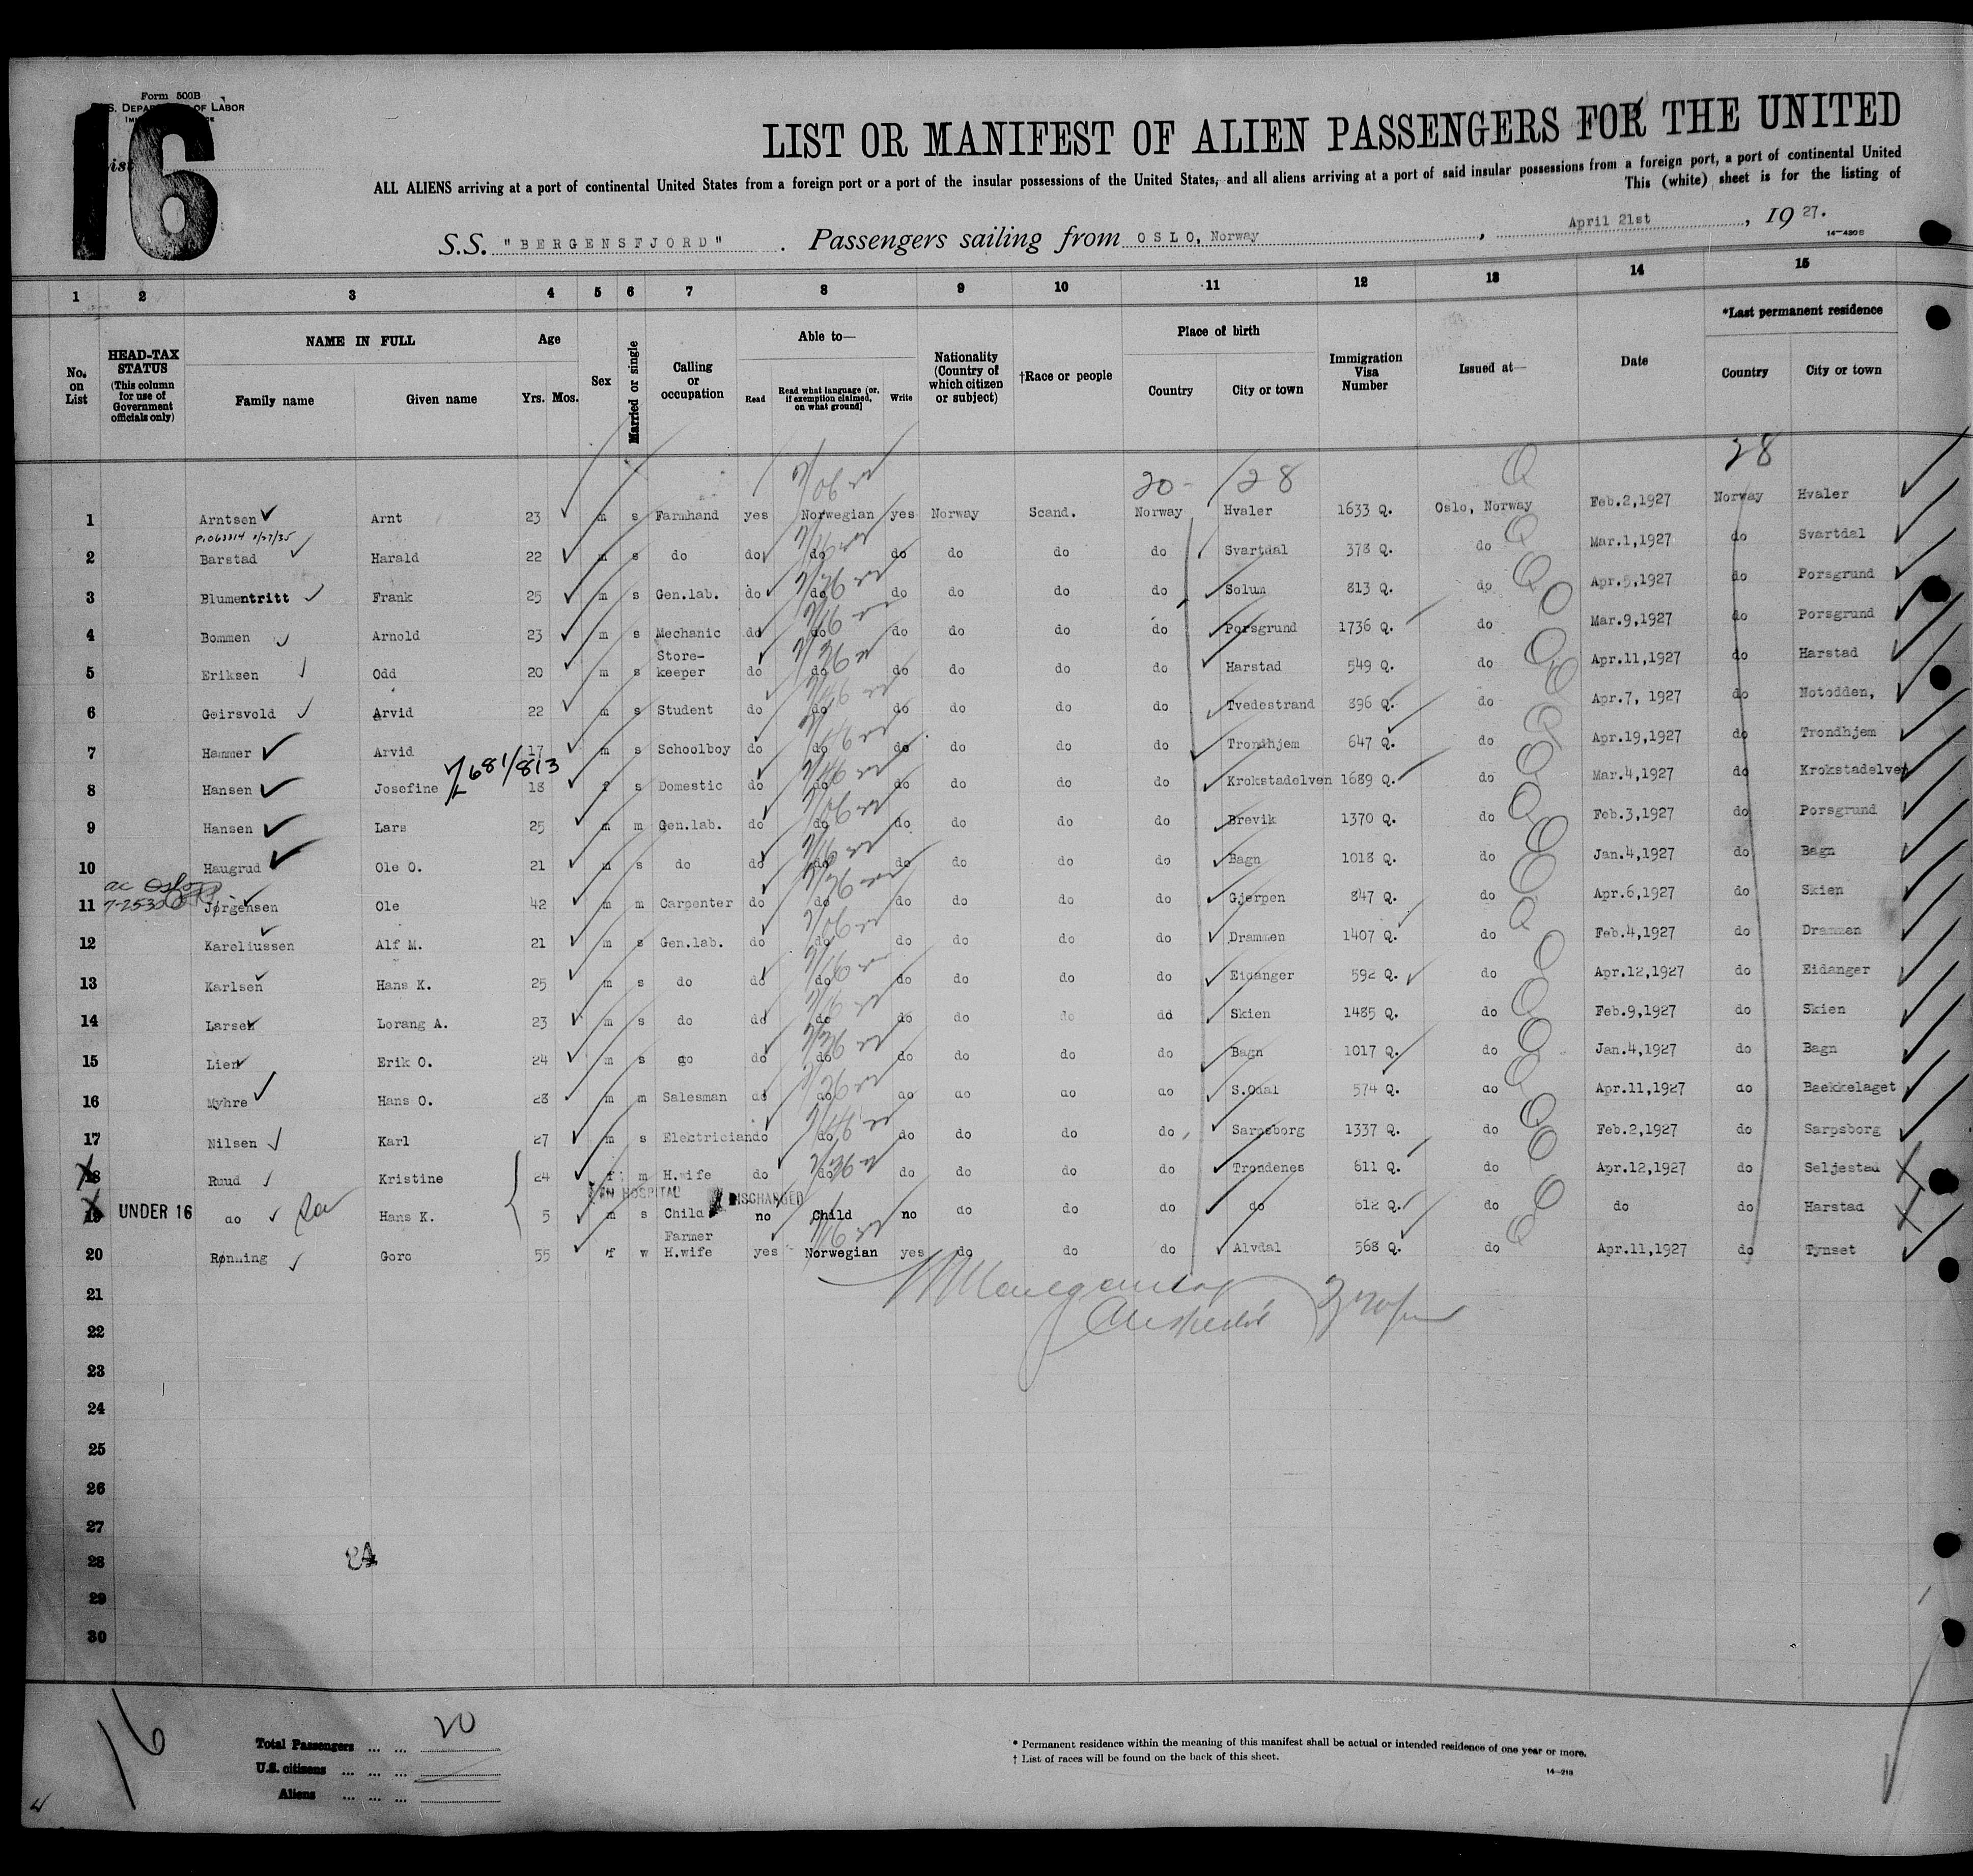 Form 500B
16
LIST OR MANIFEST OF ALIEN PASSENGERS FOR THE UNITED
ALL ALIENS arriving at a port of continental United States from a foreign port or a port of the insular possessions of the United States, and all aliens arriving at a port of said insular possessions from a foreign port, a port of continental United
This (white) sheet is for the listing of
S.S. "BERGENSFJORD" Passengers sailing from OSLO, Norway, April 21st, 1927.
14-430B
1 2 3 4 5 6 7 8 9 10 11 12 13 14 15
No. on List
HEAD-TAX STATUS (This column for use of Government officials only)
NAME IN FULL
Family name Given name
Age
Yrs. Mos.
Sex
Married or single
Calling or occupation
Able to—
Read Read what language (or, if exemption claimed, on what ground) Write
Nationality (Country of which citizen or subject)
†Race or people
Place of birth
Country City or town
Immigration Visa Number
Issued at—
Date
*Last permanent residence
Country City or town
20- /28 28
1 Arntsen Arnt 23 m s Farmhand yes Norwegian yes Norway Scand. Norway Hvaler 1633 Q. Oslo, Norway Feb.2,1927 Norway Hvaler
2 Barstad Harald 22 m s do do do do do do do Svartdal 378 Q. do Mar.1,1927 do Svartdal
3 Blumentritt Frank 25 m s Gen.lab. do do do do do do Solum 813 Q. do Apr.5,1927 do Porsgrund
4 Bommen Arnold 23 m s Mechanic do do do do do do Porsgrund 1736 Q. do Mar.9,1927 do Porsgrund
5 Eriksen Odd 20 m s Store-keeper do do do do do do Harstad 549 Q. do Apr.11,1927 do Harstad
6 Geirsvold Arvid 22 m s Student do do do do do do Tvedestrand 896 Q. do Apr.7, 1927 do Notodden,
7 Hammer Arvid 17 m s Schoolboy do do do do do do Trondhjem 647 Q. do Apr.19,1927 do Trondhjem
8 Hansen Josefine 681/813 18 f s Domestic do do do do do do Krokstadelven 1689 Q. do Mar.4,1927 do Krokstadelven
9 Hansen Lars 25 m m Gen.lab. do do do do do do Brevik 1370 Q. do Feb.3,1927 do Porsgrund
10 Haugrud Ole O. 21 m s do do do do do do do Bagn 1018 Q. do Jan.4,1927 do Bagn
11 Jørgensen Ole 42 m m Carpenter do do do do do do Gjerpen 847 Q. do Apr.6,1927 do Skien
12 Kareliussen Alf M. 21 m s Gen.lab. do do do do do do Drammen 1407 Q. do Feb.4,1927 do Drammen
13 Karlsen Hans K. 25 m s do do do do do do do Eidanger 592 Q. do Apr.12,1927 do Eidanger
14 Larsen Lorang A. 23 m s do do do do do do do Skien 1485 Q. do Feb.9,1927 do Skien
15 Lien Erik O. 24 m s go do do do do do do Bagn 1017 Q. do Jan.4,1927 do Bagn
16 Myhre Hans O. 28 m m Salesman do do do do do do S.Odal 574 Q. do Apr.11,1927 do Baekkelaget
17 Nilsen Karl 27 m s Electrician do do do do do do Sarpsborg 1337 Q. do Feb.2,1927 do Sarpsborg
18 Ruud Kristine 24 f m H.wife do do do do do do Trondenes 611 Q. do Apr.12,1927 do Seljestad
IN HOSPITAL DISCHARGED
19 UNDER 16 do Hans K. 5 m s Child no Child no do do do do 612 Q. do do do Harstad
20 Rønning Goro 55 f w Farmer H.wife yes Norwegian yes do do do Alvdal 568 Q. do Apr.11,1927 do Tynset
21
22
23
24
25
26
27
28
29
30
16
Total Passengers ... ... 20
U.S. citizens ... ... ...
Aliens ... ... ...
* Permanent residence within the meaning of this manifest shall be actual or intended residence of one year or more.
† List of races will be found on the back of this sheet.
14-219